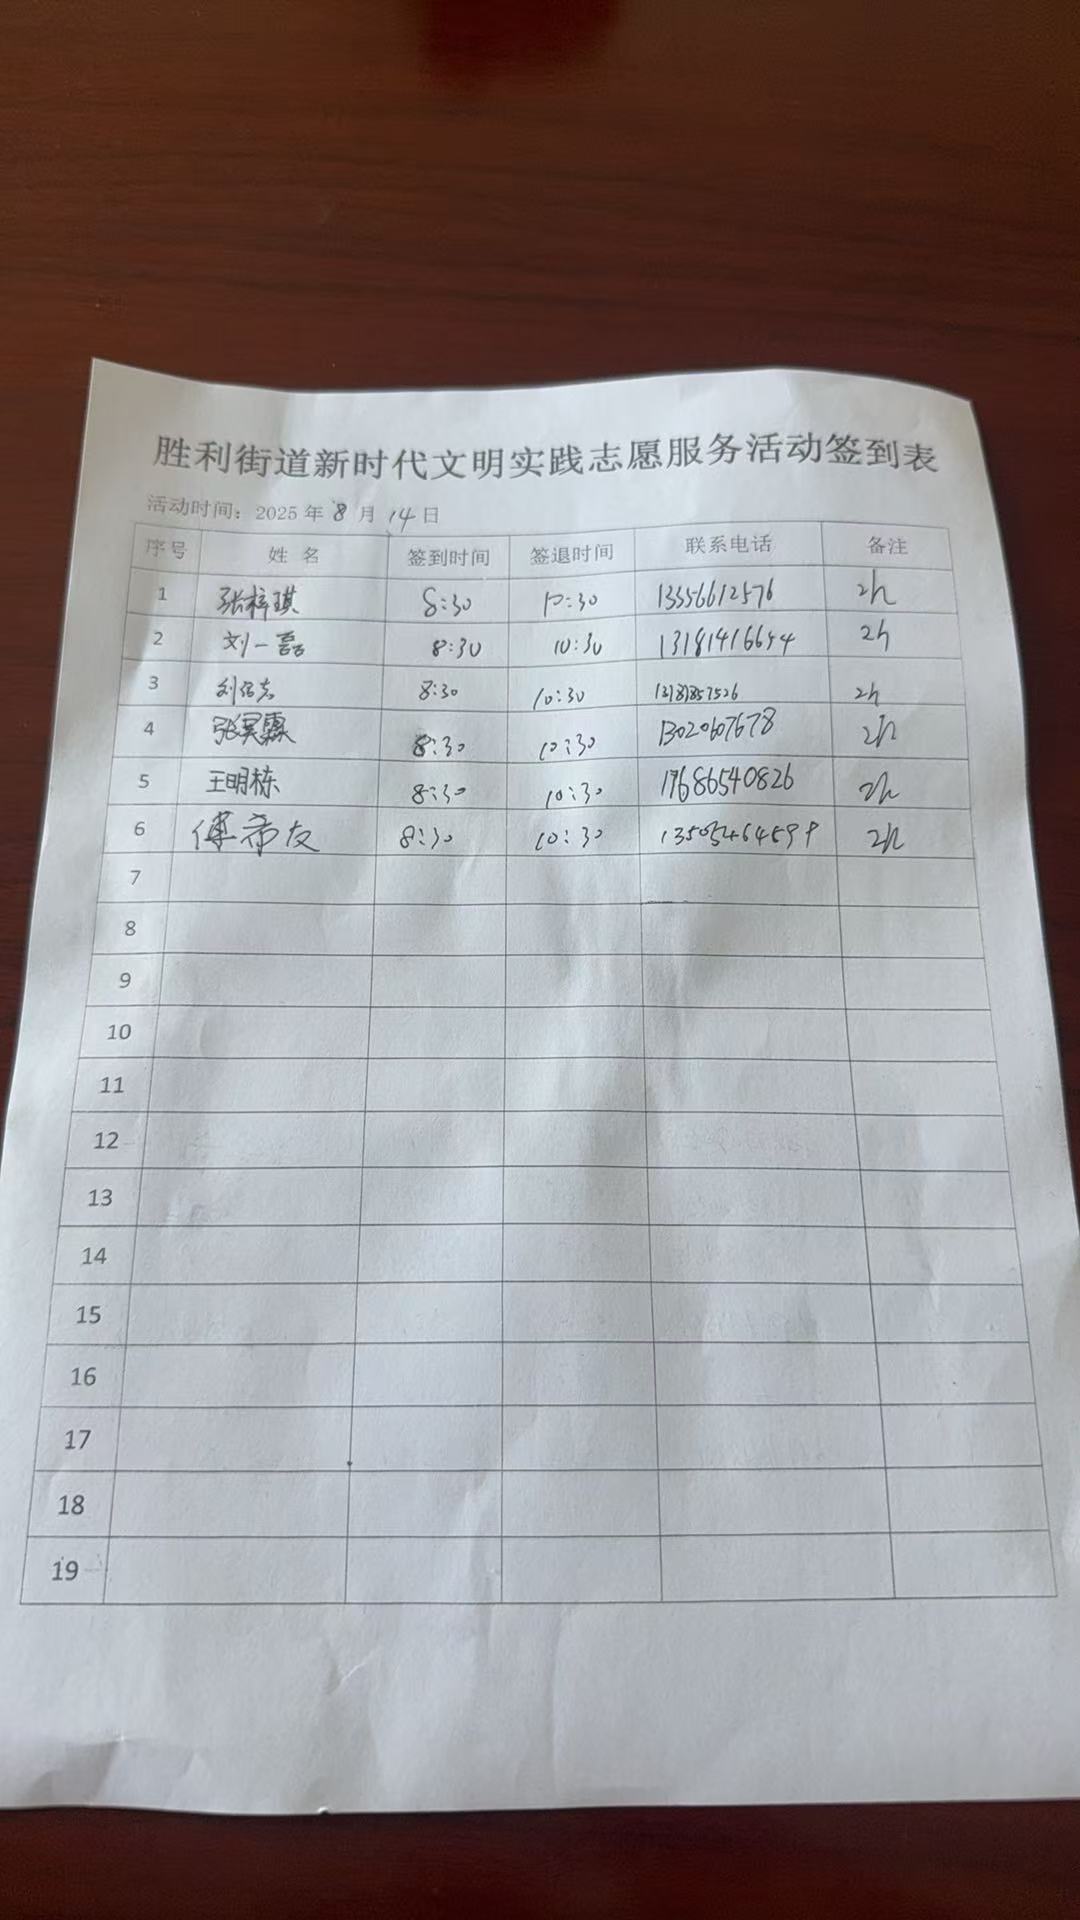 胜利街道新时代文明实践志愿服务活动签到表
活动时间：2025 年 8 月 14 日
序号 姓 名 签到时间 签退时间 联系电话 备注
1 张梓琪 8:30 10:30 13356612576 2h
2 刘一磊 8:30 10:30 2h
3 8:30 10:30 2h
4 8:30 10:30 13020607678 2h
5 王明栋 8:30 10:30 17686540826 2h
6 傅希友 8:30 10:30 2h
7
8
9
10
11
12
13
14
15
16
17
18
19